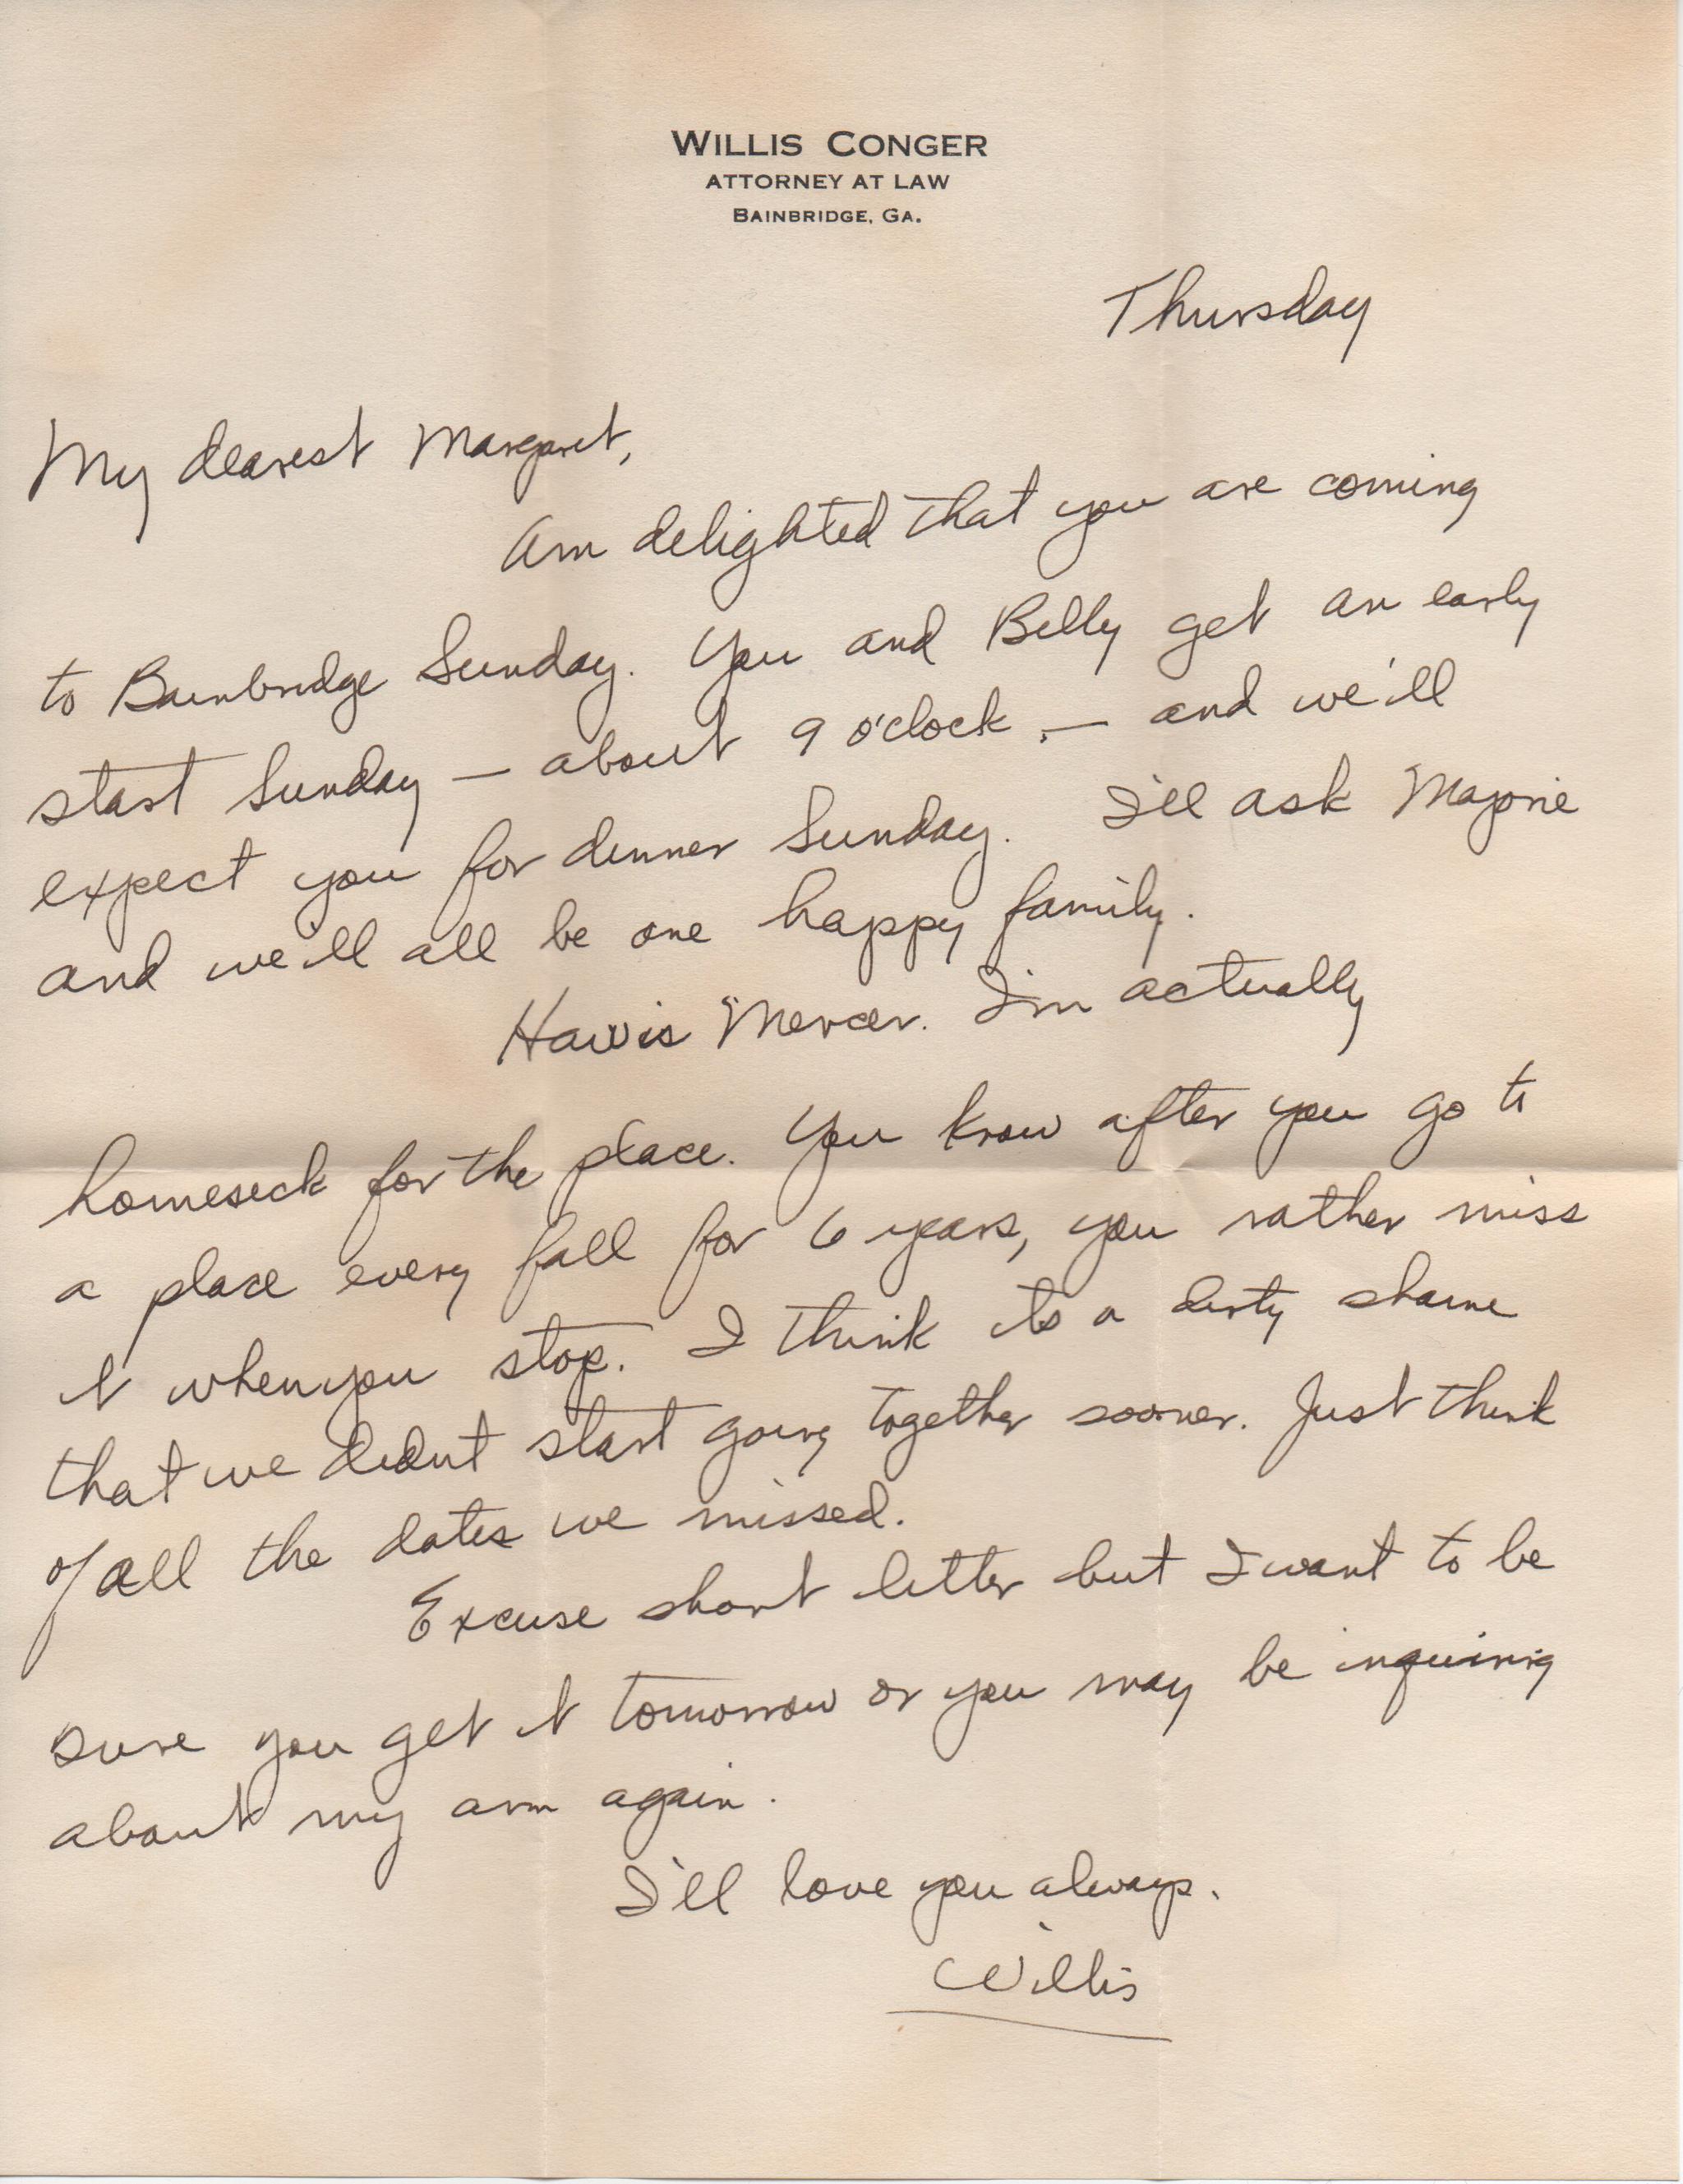 WILLIS CONGER
ATTORNEY AT LAW
BAINBRIDGE, GA.
Thursday
My dearest Margaret,
Am delighted that you are coming
to Bainbridge Sunday. You and Billy get an early
start Sunday — about 9 o'clock, — and we'll
expect you for dinner Sunday. I'll ask Majorie
and we'll all be one happy family.
Mercer. I'm actually
homesick for the place. You know after you go to
a place every fall for 6 years, you rather miss
it when you stop. I think its a dirty shame
that we didnt start going together sooner. Just think
of all the dates we missed.
Excuse short letter but I want to be
sure you get it tomorrow or you may be inquiring
about my arm again.
I'll love you always.
Willis